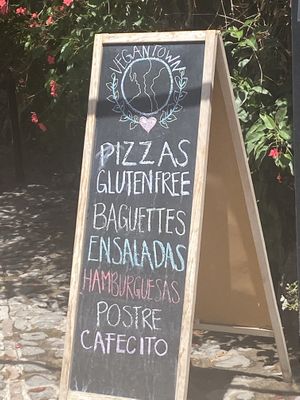 VEGANTOWN
PIZZAS
GLUTENFREE
BAGUETTES
ENSALADAS
HAMBURGUESAS
POSTRE
CAFECITO